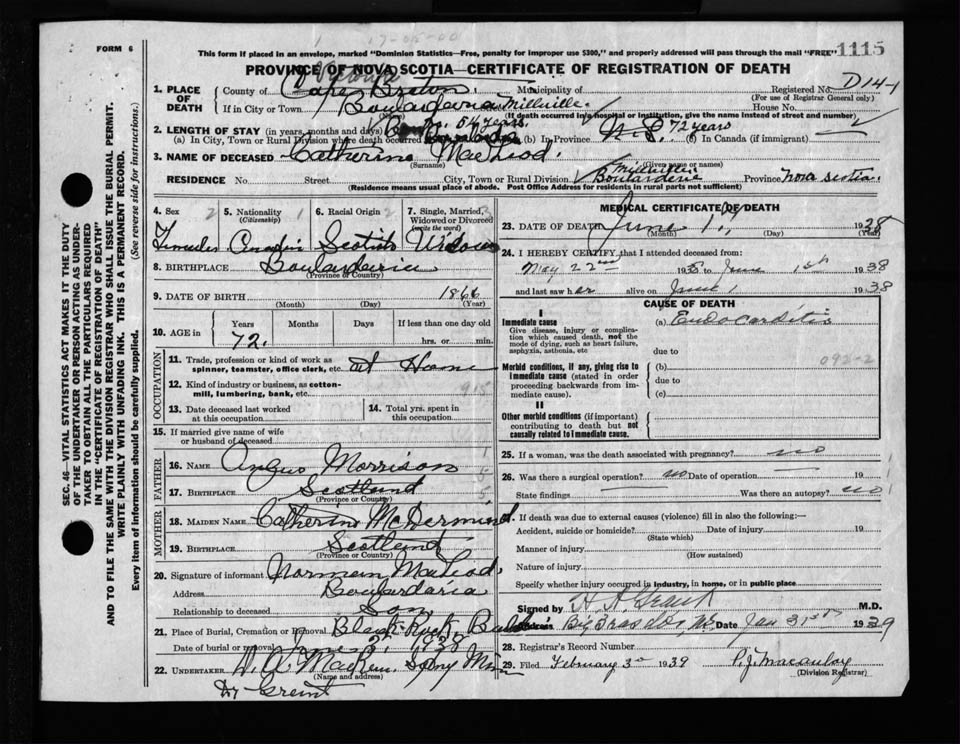 FORM 6
This form if placed in an envelope, marked "Dominion Statistics—Free, penalty for improper use $300," and properly addressed will pass through the mail "FREE" 1115
PROVINCE OF NOVA SCOTIA—CERTIFICATE OF REGISTRATION OF DEATH
SEC. 46—VITAL STATISTICS ACT MAKES IT THE DUTY
OF THE UNDERTAKER OR PERSON ACTING AS UNDER-
TAKER TO OBTAIN ALL THE PARTICULARS REQUIRED
IN THE "CERTIFICATE OF REGISTRATION OF DEATH"
AND TO FILE THE SAME WITH THE DIVISION REGISTRAR WHO SHALL ISSUE THE BURIAL PERMIT.
WRITE PLAINLY WITH UNFADING INK. THIS IS A PERMANENT RECORD.
Every item of information should be carefully supplied. (See reverse side for instructions.)
1. PLACE OF DEATH
County of Cape Breton Municipality of Registered No. D14-1
(For use of Registrar General only)
If in City or Town Boulardaria Millville. House No.
(Name) (If death occurred in a hospital or institution, give the name instead of street and number)
2. LENGTH OF STAY (in years, months and days) 54 years
(a) In City, Town or Rural Division where death occurred (b) In Province N.S. 72 years (c) In Canada (if immigrant)
3. NAME OF DECEASED Catherine MacLeod.
(Surname) (Given name or names)
RESIDENCE No. Street City, Town or Rural Division Millville Boulardaria Province Nova Scotia.
(Residence means usual place of abode. Post Office Address for residents in rural parts not sufficient)
4. Sex 2 5. Nationality (Citizenship) 1 6. Racial Origin 2 7. Single, Married, Widowed or Divorced (write the word)
Female Scotish Widow
8. BIRTHPLACE Boulardaria
(Province or Country)
9. DATE OF BIRTH 1866
(Month) (Day) (Year)
10. AGE in Years Months Days If less than one day old
72. hrs. or min.
OCCUPATION
11. Trade, profession or kind of work as spinner, teamster, office clerk, etc. at Home
12. Kind of industry or business, as cotton-mill, lumbering, bank, etc.
13. Date deceased last worked at this occupation
14. Total yrs. spent in this occupation
15. If married give name of wife or husband of deceased
FATHER
16. NAME Angus Morrison
17. BIRTHPLACE Scotland
(Province or Country)
MOTHER
18. MAIDEN NAME Catherine McDermind.
19. BIRTHPLACE Scotland
(Province or Country)
20. Signature of informant Norman MacLeod
Address Boulardaria
Relationship to deceased Son
21. Place of Burial, Cremation or Removal Black Rock
Date of burial or removal 1938
22. UNDERTAKER
(Name and address)
Dr Grant
MEDICAL CERTIFICATE OF DEATH
23. DATE OF DEATH June 1, 1938
(Month) (Day) (Year)
24. I HEREBY CERTIFY that I attended deceased from:
May 22nd 1938 to June 1st 1938
and last saw her alive on June 1 1938
CAUSE OF DEATH
I
Immediate cause
Give disease, injury or complication which caused death, not the mode of dying, such as heart failure, asphyxia, asthenia, etc
(a) Endocarditis
due to
092-2
Morbid conditions, if any, giving rise to immediate cause (stated in order proceeding backwards from immediate cause).
(b)
due to
(c)
II
Other morbid conditions (if important) contributing to death but not causally related to immediate cause.
25. If a woman, was the death associated with pregnancy? no
26. Was there a surgical operation? no Date of operation 19
State findings Was there an autopsy? no
27. If death was due to external causes (violence) fill in also the following:—
Accident, suicide or homicide? Date of injury 19
(State which)
Manner of injury
(How sustained)
Nature of injury
Specify whether injury occurred in industry, in home, or in public place
Signed by H.A. Grant M.D.
Address Big Bras d'Or, N.S. Date Jan 31st 1939
28. Registrar's Record Number
29. Filed February 3rd 1939 P.J. Macaulay
(Division Registrar)